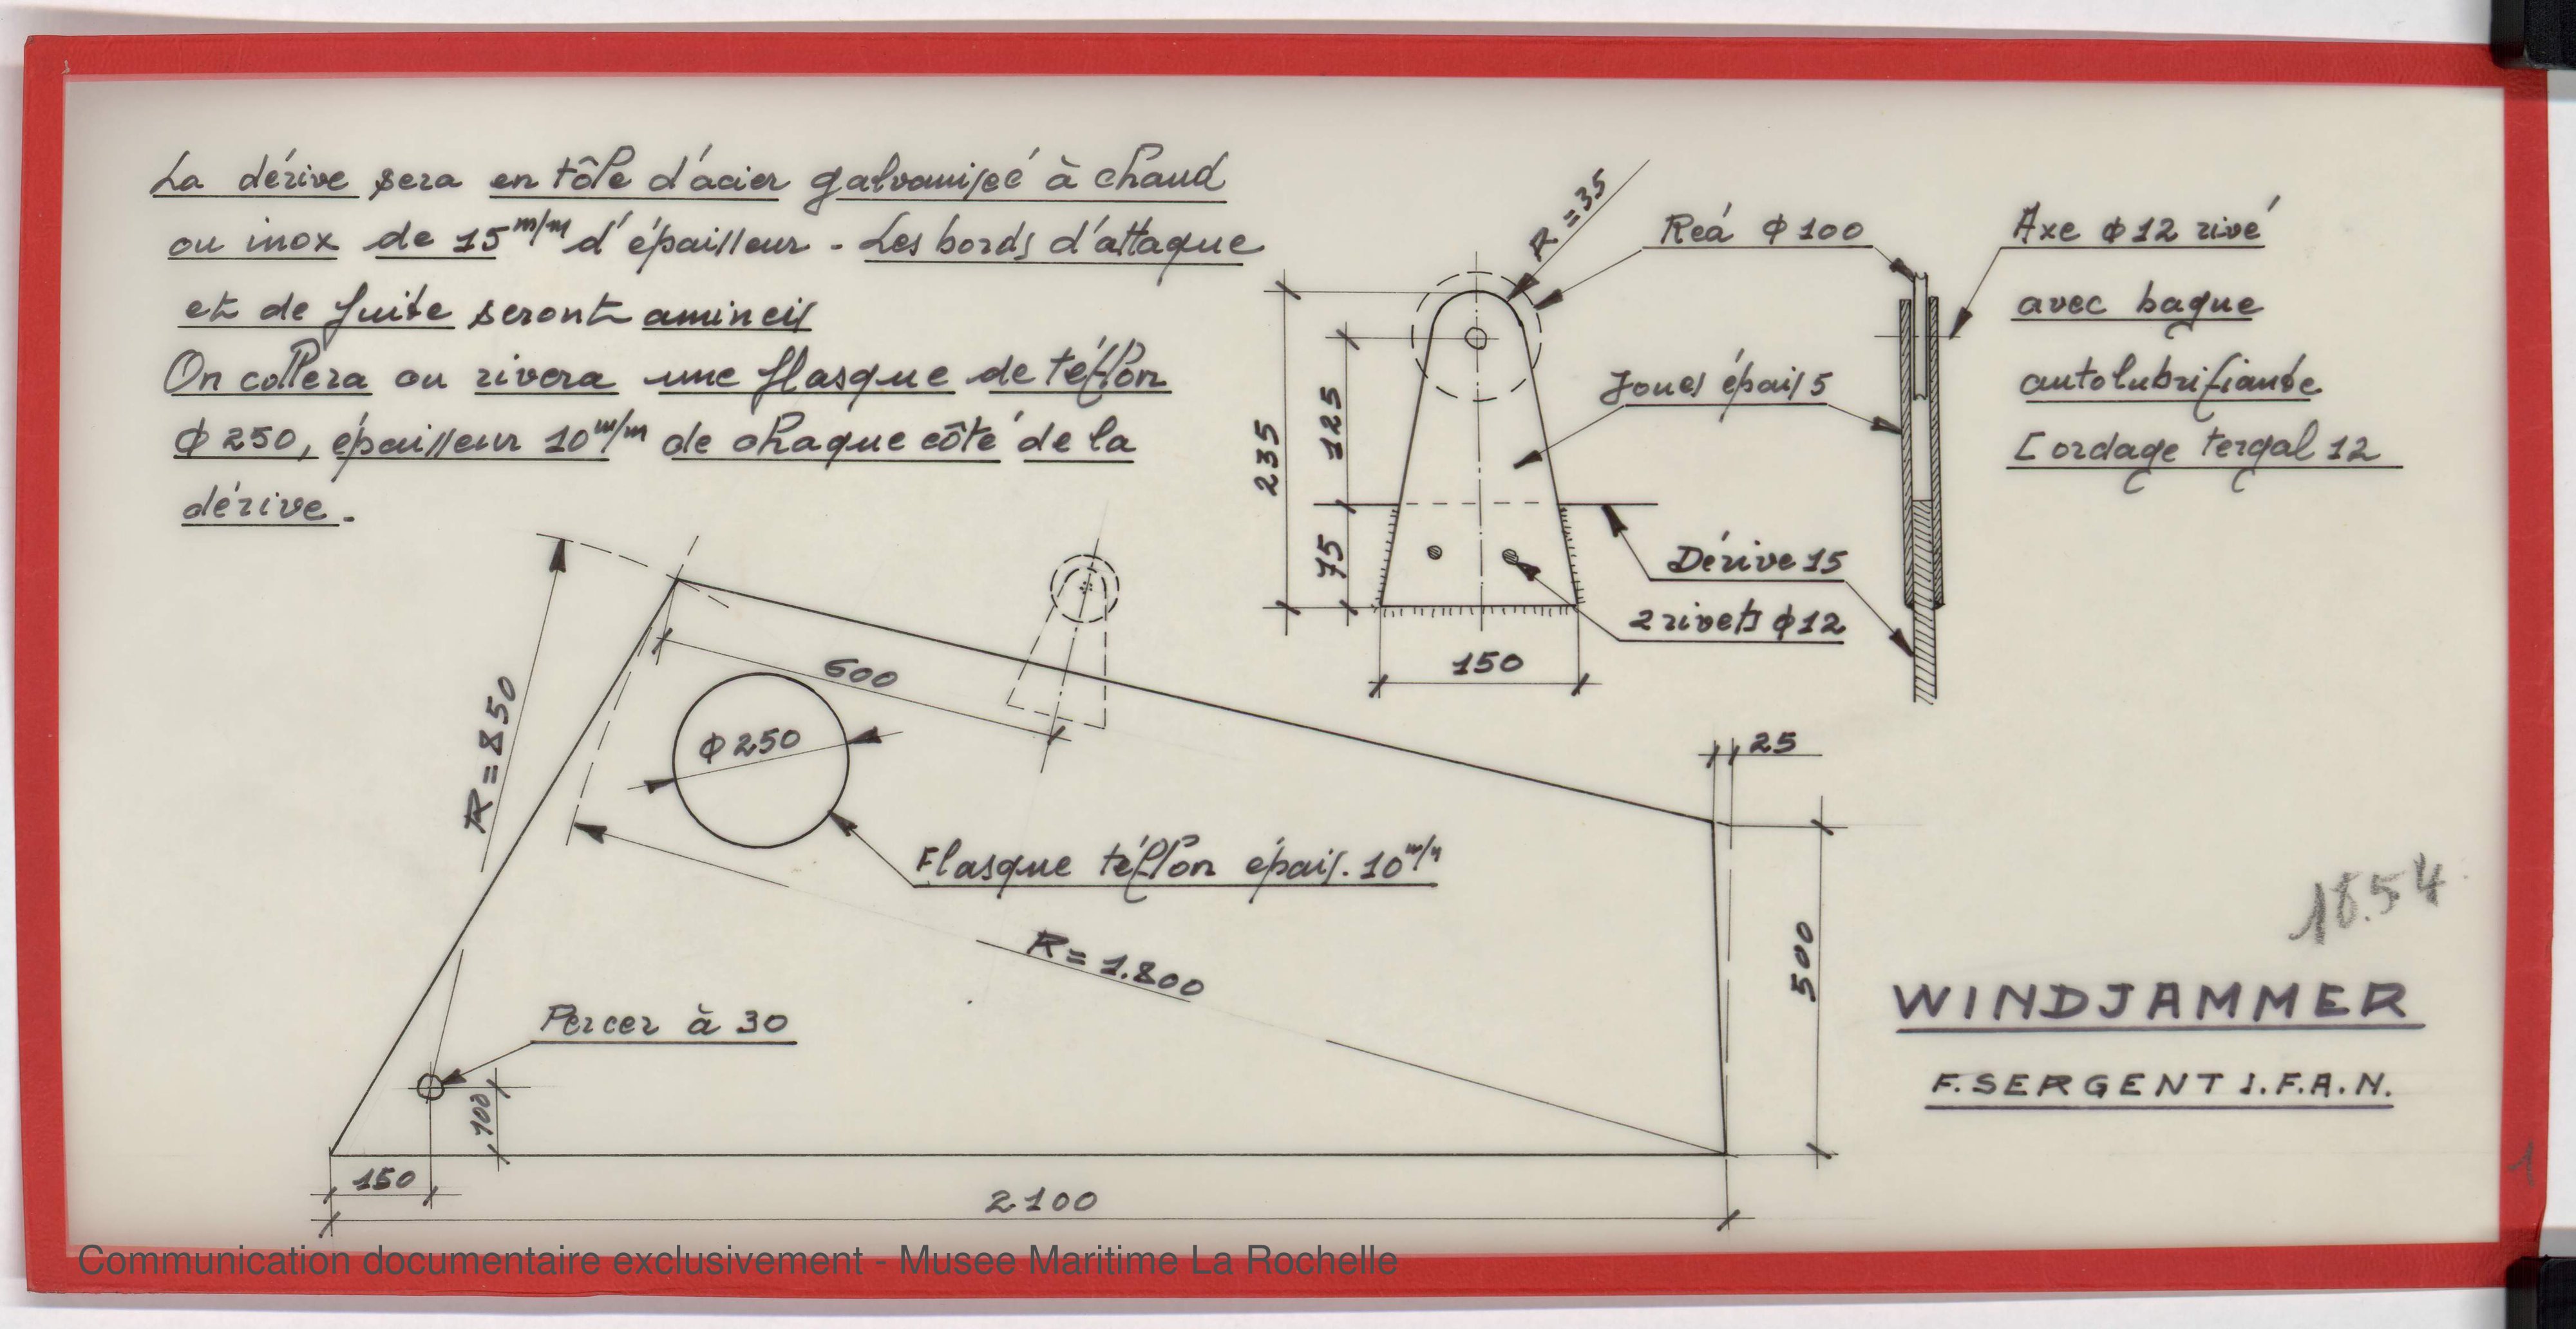 La dérive sera en tôle d'acier galvanisée à chaud
ou inox de 15 m/m d'épailleur - Les bords d'attaque
et de fuite seront amincis
On collera ou rivera une flasque de téflon
ϕ 250, épailleur 10 m/m de chaque côté de la
dérive.
R=35
Réa ϕ 100
Axe ϕ 12 rivé
avec bague
autolubrifiante
Cordage tergal 12
Joues épais 5
235
125
75
Dérive 15
2 rivets ϕ 12
150
R=850
600
ϕ 250
25
Flasque téflon épais. 10 m/m
R=1.800
500
Percer à 30
100
150
2100
18.54
WINDJAMMER
F. SERGENT I.F.A.N.
1
Communication documentaire exclusivement - Musee Maritime La Rochelle